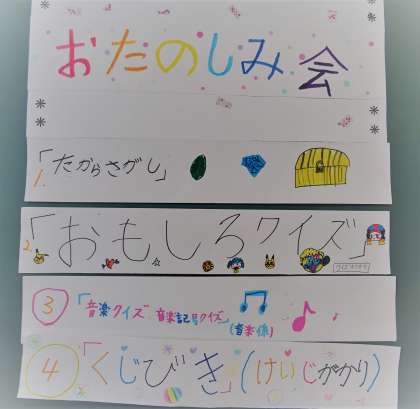 おたのしみ会
1.「たからさがし」
2.「おもしろクイズ」
3「音楽クイズ 音楽記号クイズ」
(音楽係)
4「くじびき」(けいじがかり)